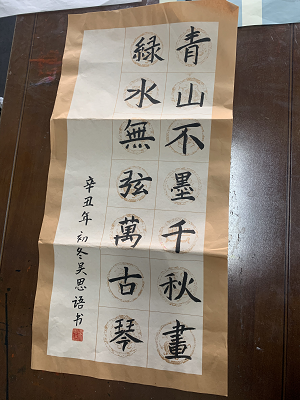 青山不墨千秋畫
緑水無弦萬古琴
辛丑年初冬吴思语书